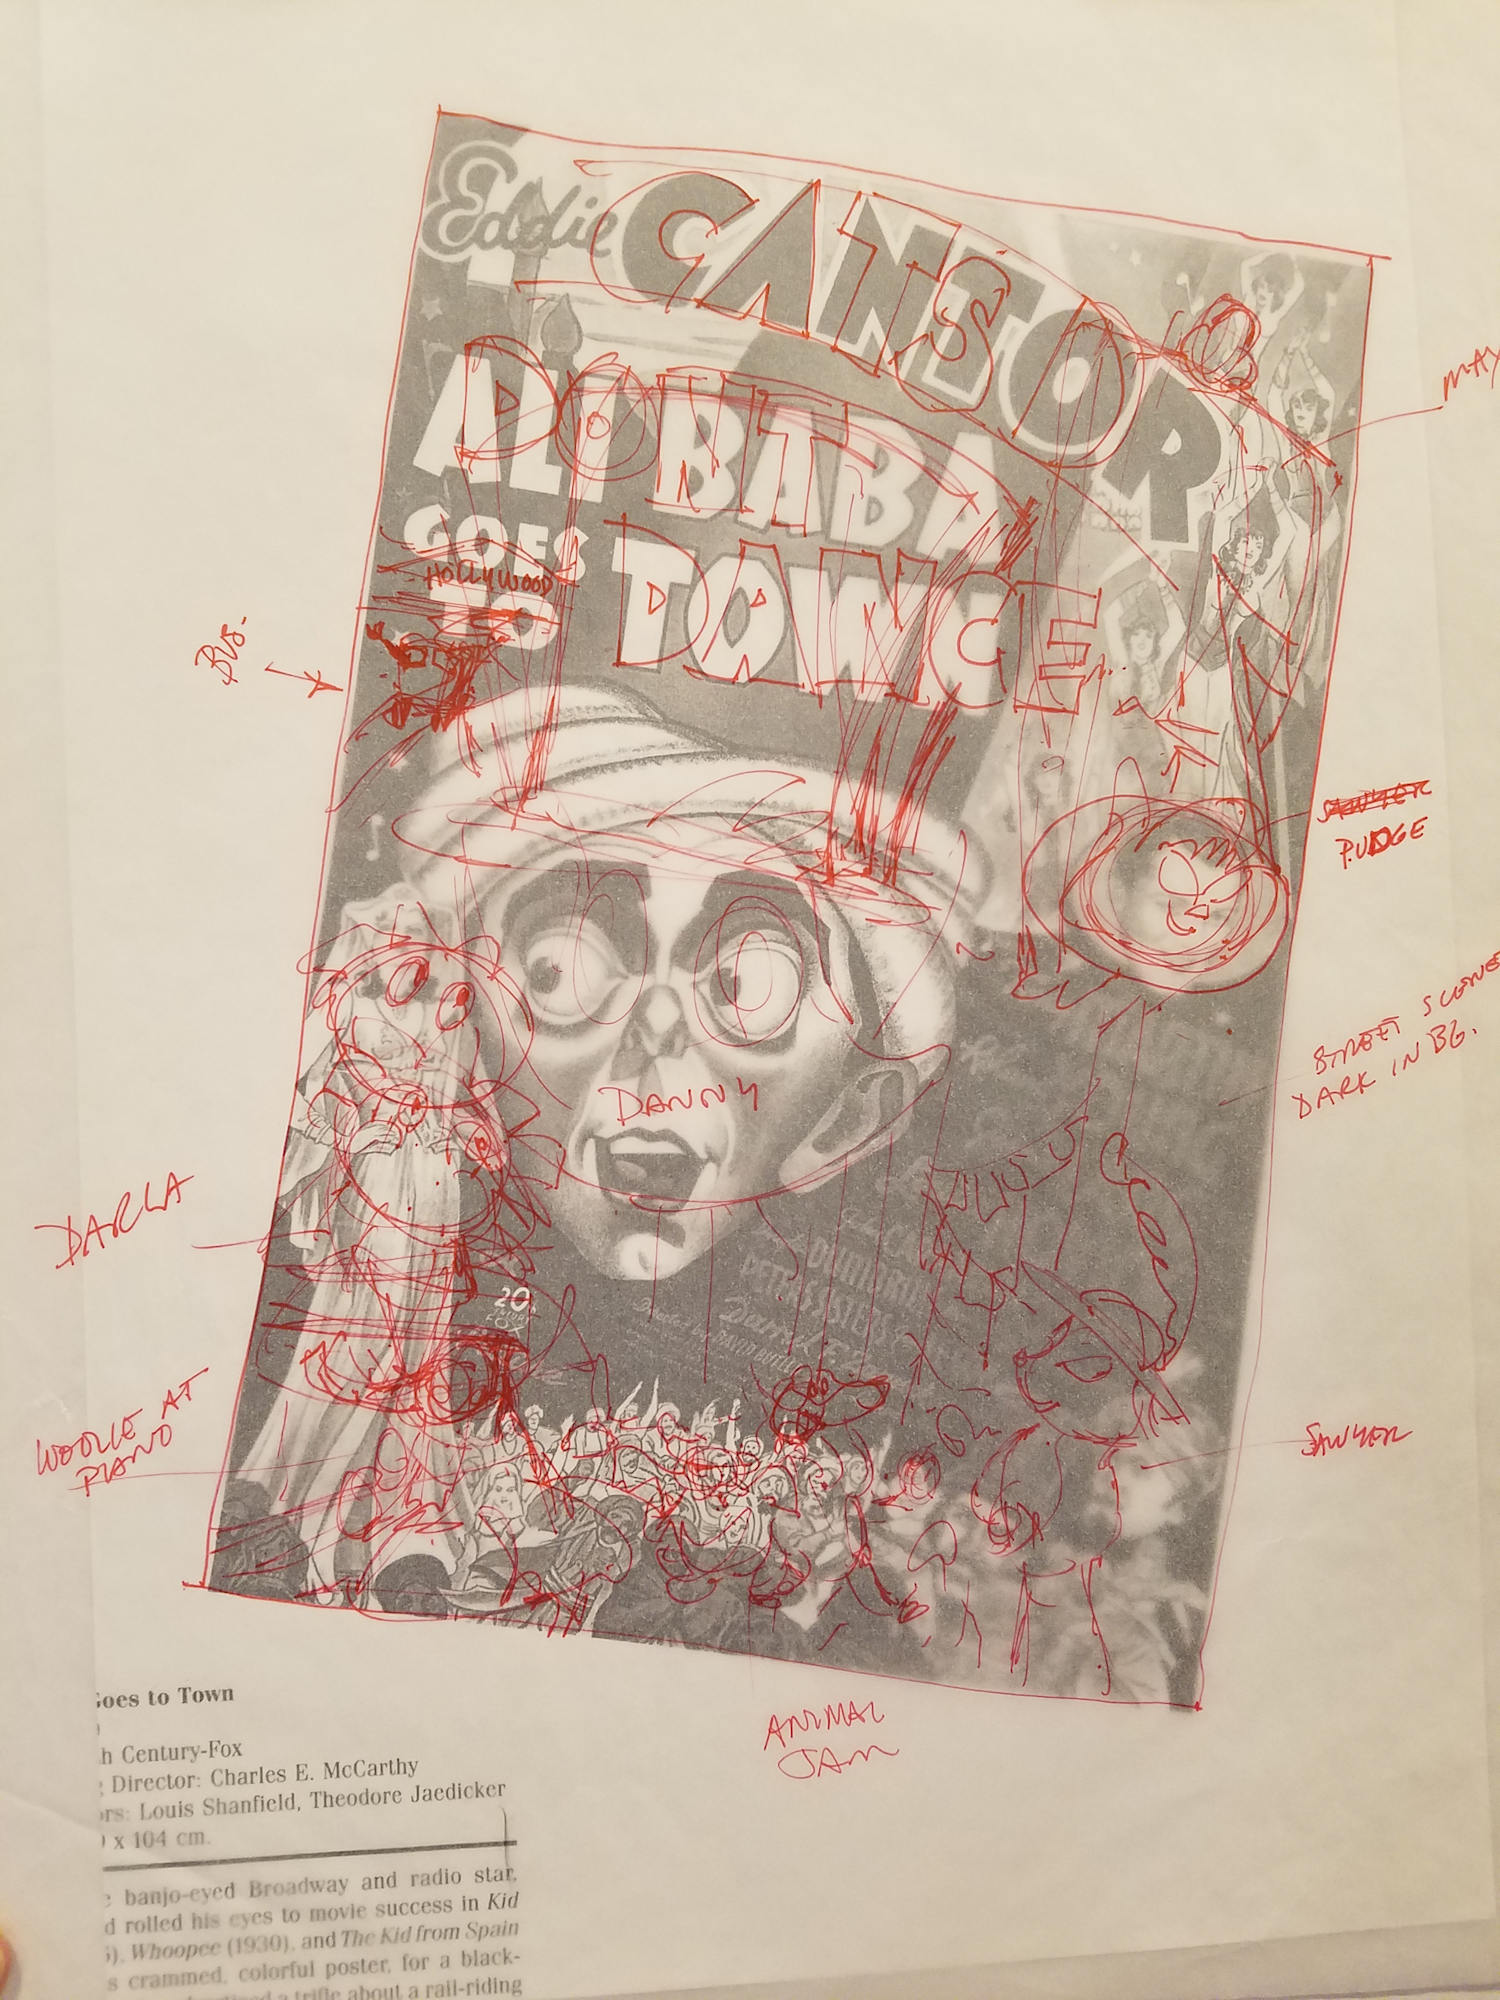 Eddie CANTOR
CATS
DON'T
ALI BABA
GOES
HOLLYWOOD
TO TOWN
DANCE
MAY
BUS-
SAWYER
PUDGE
STREET SCENE
DARK IN BG.
DANNY
DARLA
20th
CENTURY
FOX
Directed by DAVID BUTLER
WOOLIE AT
PIANO
SAWYER
ANIMAL
JAM
Goes to Town
h Century-Fox
Director: Charles E. McCarthy
ors: Louis Shanfield, Theodore Jaedicker
x 104 cm.
banjo-eyed Broadway and radio star,
d rolled his eyes to movie success in Kid
), Whoopee (1930), and The Kid from Spain
s crammed, colorful poster, for a black-
a trifle about a rail-riding